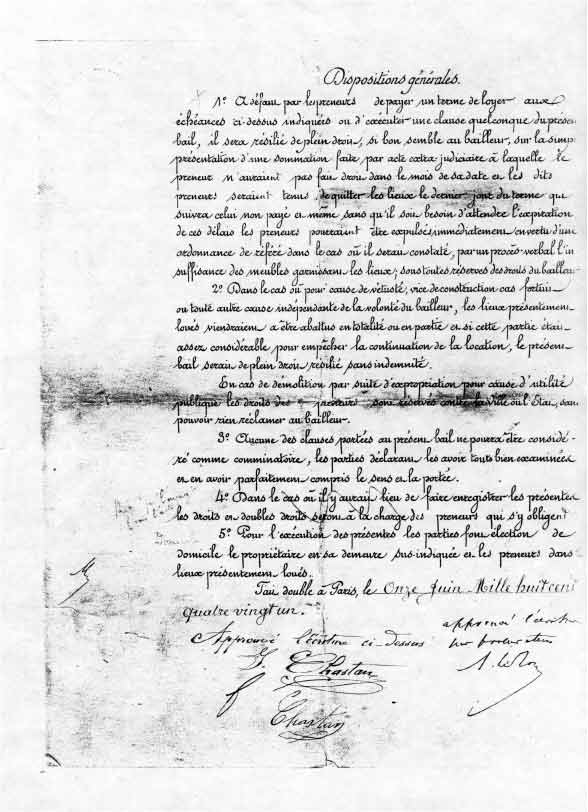 Dispositions générales.
1º A défaut par les preneurs de payer un terme de loyer aux
échéances ci-dessus indiquées ou d'exécuter une clause quelconque du présen
bail, il sera résilié de plein droit, si bon semble au bailleur, sur la simp
présentation d'une sommation faite, par acte extra judiciaire à laquelle le
preneur n'auraient pas fait droit dans le mois de sa date et les dits
preneurs seraient tenus, de quitter les lieux le dernier jour du terme qui
suivra celui non payé et même sans qu'il soit besoin d'attendre l'expiration
de ces délais les preneurs pourraient être expulsés immédiatement en vertu d'une
ordonnance de référé dans le cas où il serait constaté, par un procès-verbal l'in
suffisance des meubles garnissant les lieux; sous toutes réserves des droits du bailleur
2º Dans le cas où pour cause de vétusté, vice de construction cas fortuit
ou toute autre cause indépendante de la volonté du bailleur, les lieux présentement
loués viendraient à être abattus en totalité ou en partie et si cette partie était
assez considérable pour empêcher la continuation de la location, le présent
bail serait de plein droit résilié sans indemnité.
En cas de démolition par suite d'expropriation pour cause d'utilité
publique les droits des preneurs sont réservés contre la Ville ou l'Etat, sans
pouvoir rien réclamer au bailleur.
3º Aucune des clauses portées au présent bail ne pourra être considé-
ré comme comminatoire, les parties déclarant les avoir tout bien examinées
et en avoir parfaitement compris le sens et la portée.
4º Dans le cas où il y aurait lieu de faire enregistrer les présentes
les droits et doubles droits seront à la charge des preneurs qui s'y obligent
5º Pour l'exécution des présentes les parties font élection de
domicile le propriétaire en sa demeure sus-indiquée et les preneurs dans
lieux présentement loués.
Fait double à Paris, le Onze Juin Mille huit cent
quatre vingt un.
Approuvé l'écriture ci-dessus
approuvé l'écriture
Chastan
Chastan